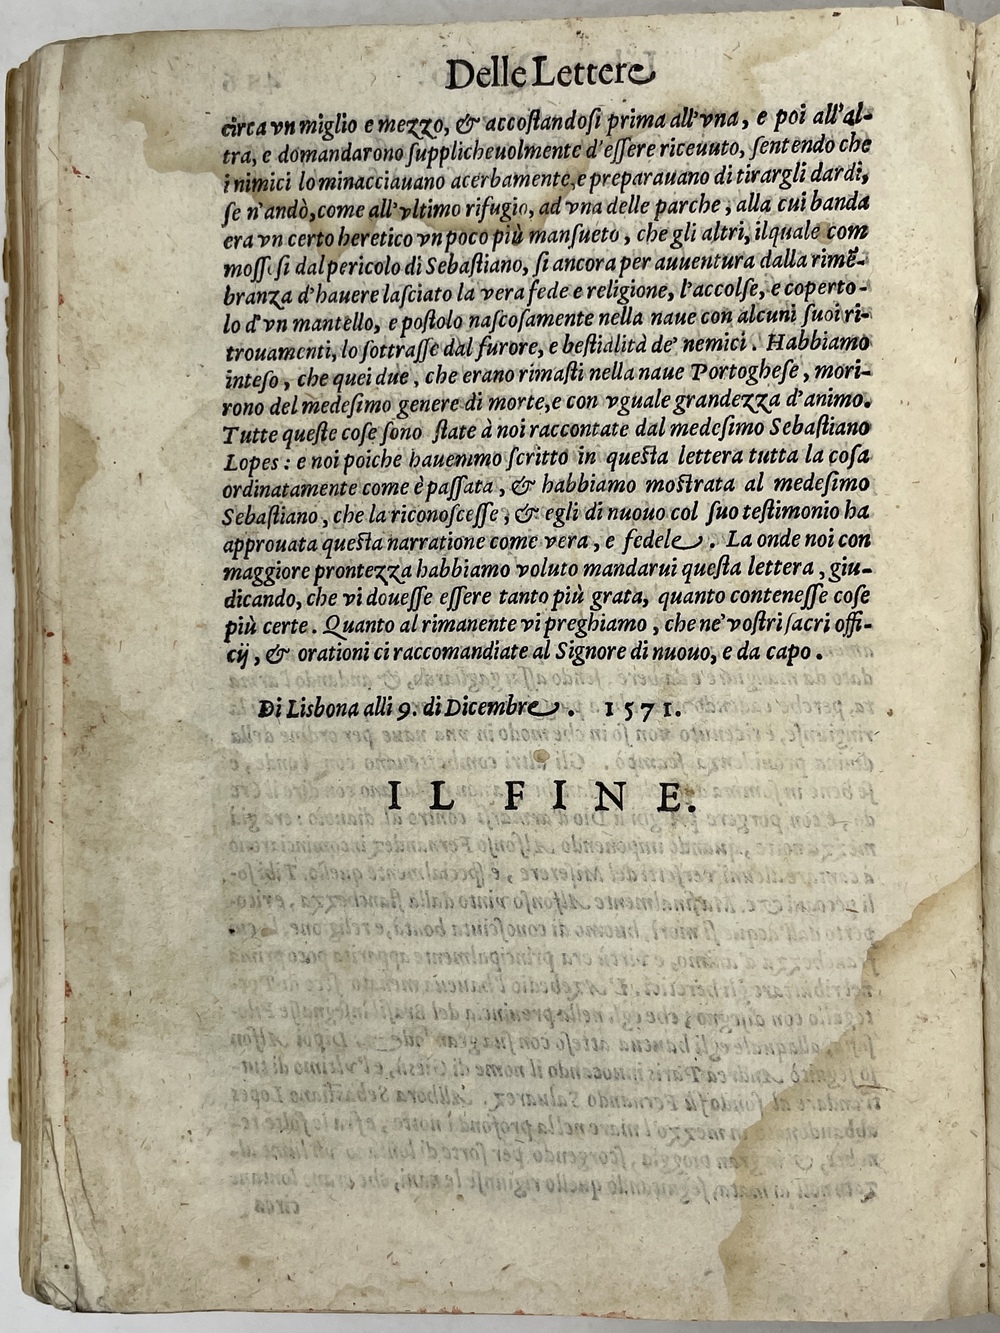 Delle Lettere
circa vn miglio e mezzo, & accoſtandoſi prima all'vna, e poi all'al-
tra, e domandarono ſuppliсheuolmente d'eſſere riceuuto, ſentendo che
i nimici lo minacciauano acerbamente, e preparauano di tirargli dardi,
ſe n'andò, come all'vltimo rifugio, ad vna delle parche, alla cui banda
era vn certo heretico vn poco più manſueto, che gli altri, ilquale com
moſſoſi dal pericolo di Sebaſtiano, ſi ancora per auuentura dalla rimẽ-
branza d'hauere laſciato la vera fede e religione, l'accolſe, e coperto-
lo d'vn mantello, e poſtolo naſcoſamente nella naue con alcuni ſuoi ri-
trouamenti, lo ſottraſſe dal furore, e beſtialità de' nemici. Habbiamo
inteſo, che quei due, che erano rimaſti nella naue Portogheſe, mori-
rono del medeſimo genere di morte, e con vguale grandezza d'animo.
Tutte queſte coſe ſono ſtate à noi raccontate dal medeſimo Sebaſtiano
Lopes: e noi poiche hauemmo ſcritto in queſta lettera tutta la coſa
ordinatamente come è paſſata, & habbiamo moſtrata al medeſimo
Sebaſtiano, che la riconoſceſſe, & egli di nuouo col ſuo teſtimonio ha
approuata queſta narratione come vera, e fedele. La onde noi con
maggiore prontezza habbiamo voluto mandarui queſta lettera, giu-
dicando, che vi doueſſe eſſere tanto più grata, quanto conteneſſe coſe
più certe. Quanto al rimanente vi preghiamo, che ne' voſtri ſacri offi-
cij, & orationi ci raccomandiate al Signore di nuouo, e da capo.
Di Lisbona alli 9. di Dicembre. 1571.
IL FINE.